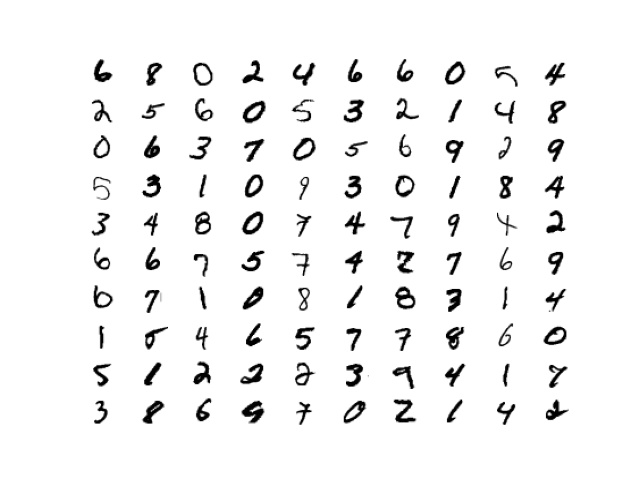 6 8 0 2 4 6 6 0 5 4
2 5 6 0 5 3 2 1 4 8
0 6 3 7 0 5 6 9 2 9
5 3 1 0 9 3 0 1 8 4
3 4 8 0 7 4 7 9 4 2
6 6 7 5 7 4 2 7 6 9
6 7 1 0 8 1 8 3 1 4
1 5 4 6 5 7 7 8 6 0
5 1 2 2 2 3 9 4 1 7
3 8 6 9 7 0 2 1 4 2